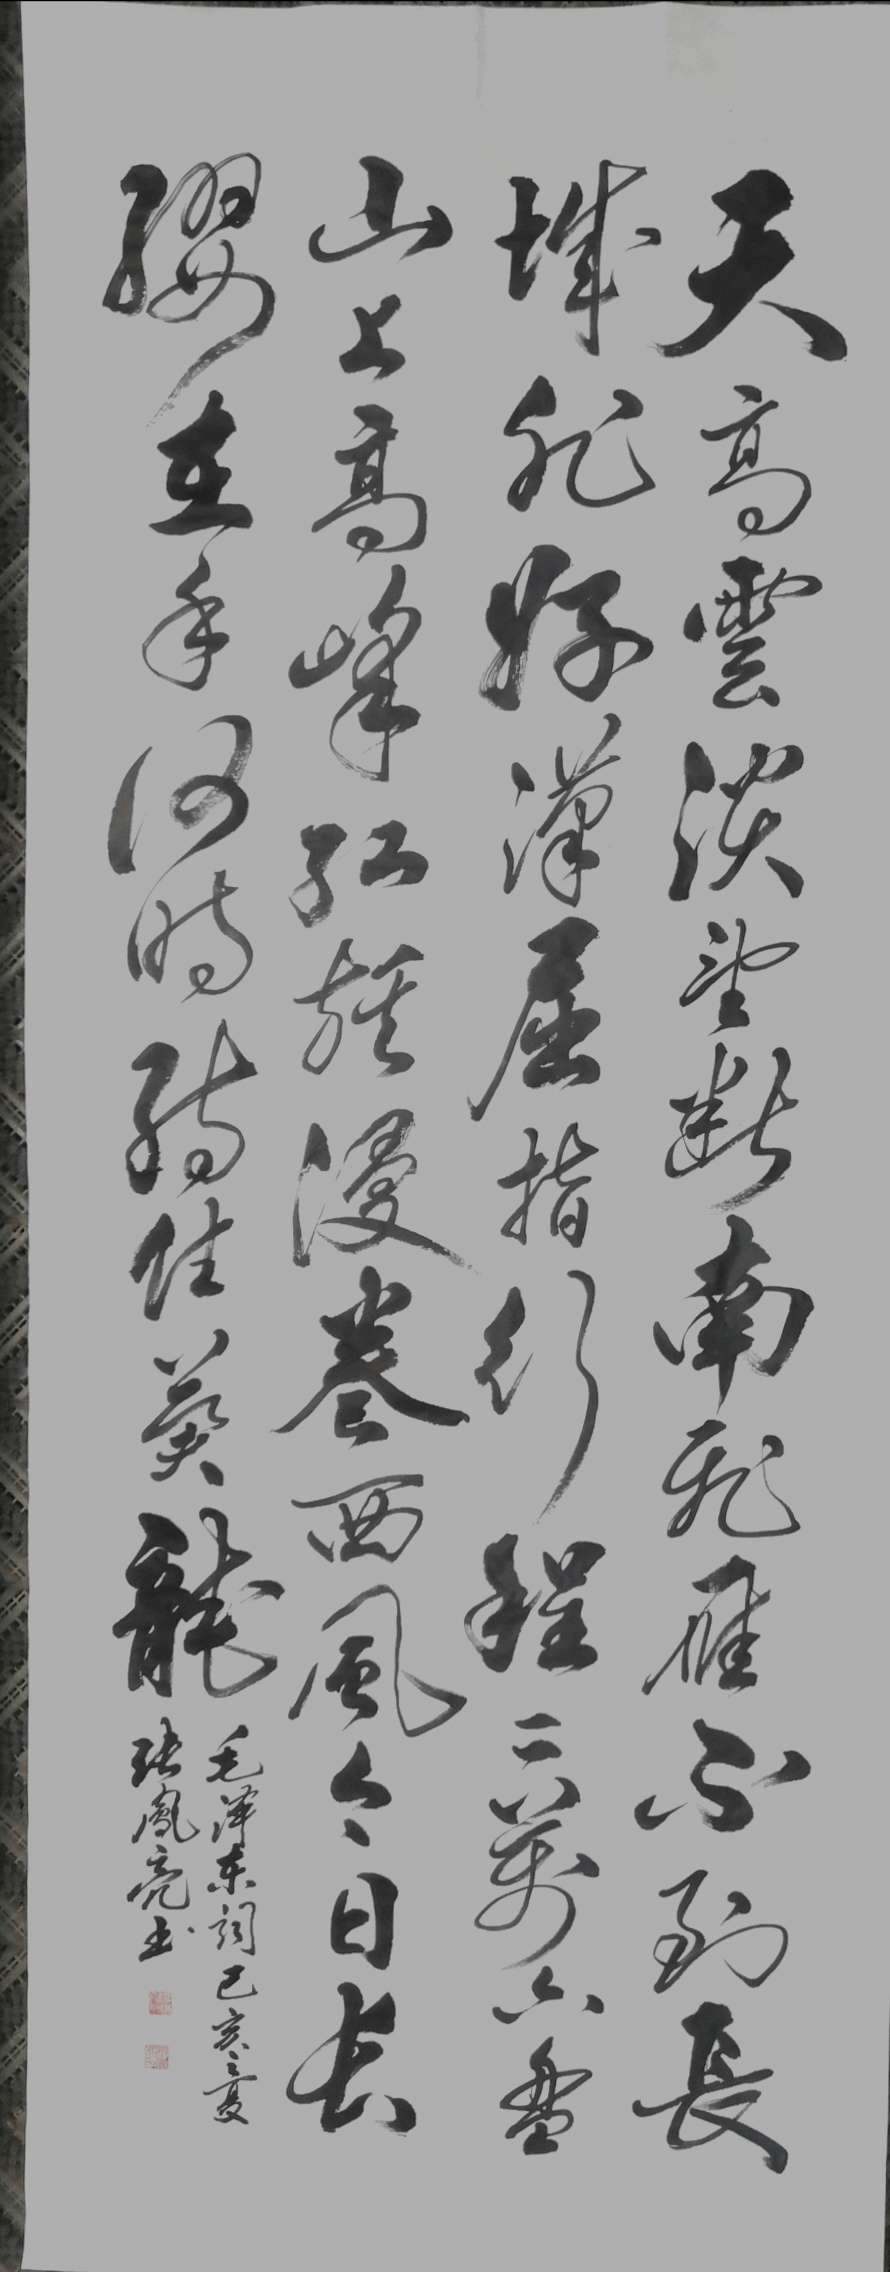 天高雲淡望断南飛雁不到長
城非好漢屈指行程二萬六盤
山上高峰紅旗漫卷西風今日長
纓在手何時縛住蒼龍
毛澤东詞己亥之夏
張鳳亮书